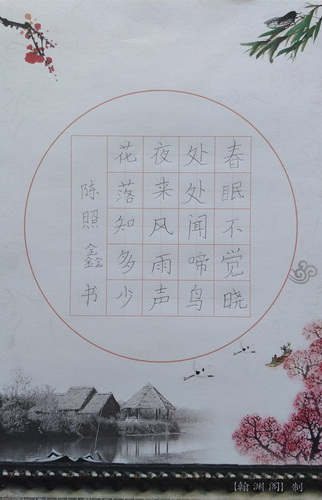 春眠不觉晓
处处闻啼鸟
夜来风雨声
花落知多少
陈照鑫书
【翰渊阁】制